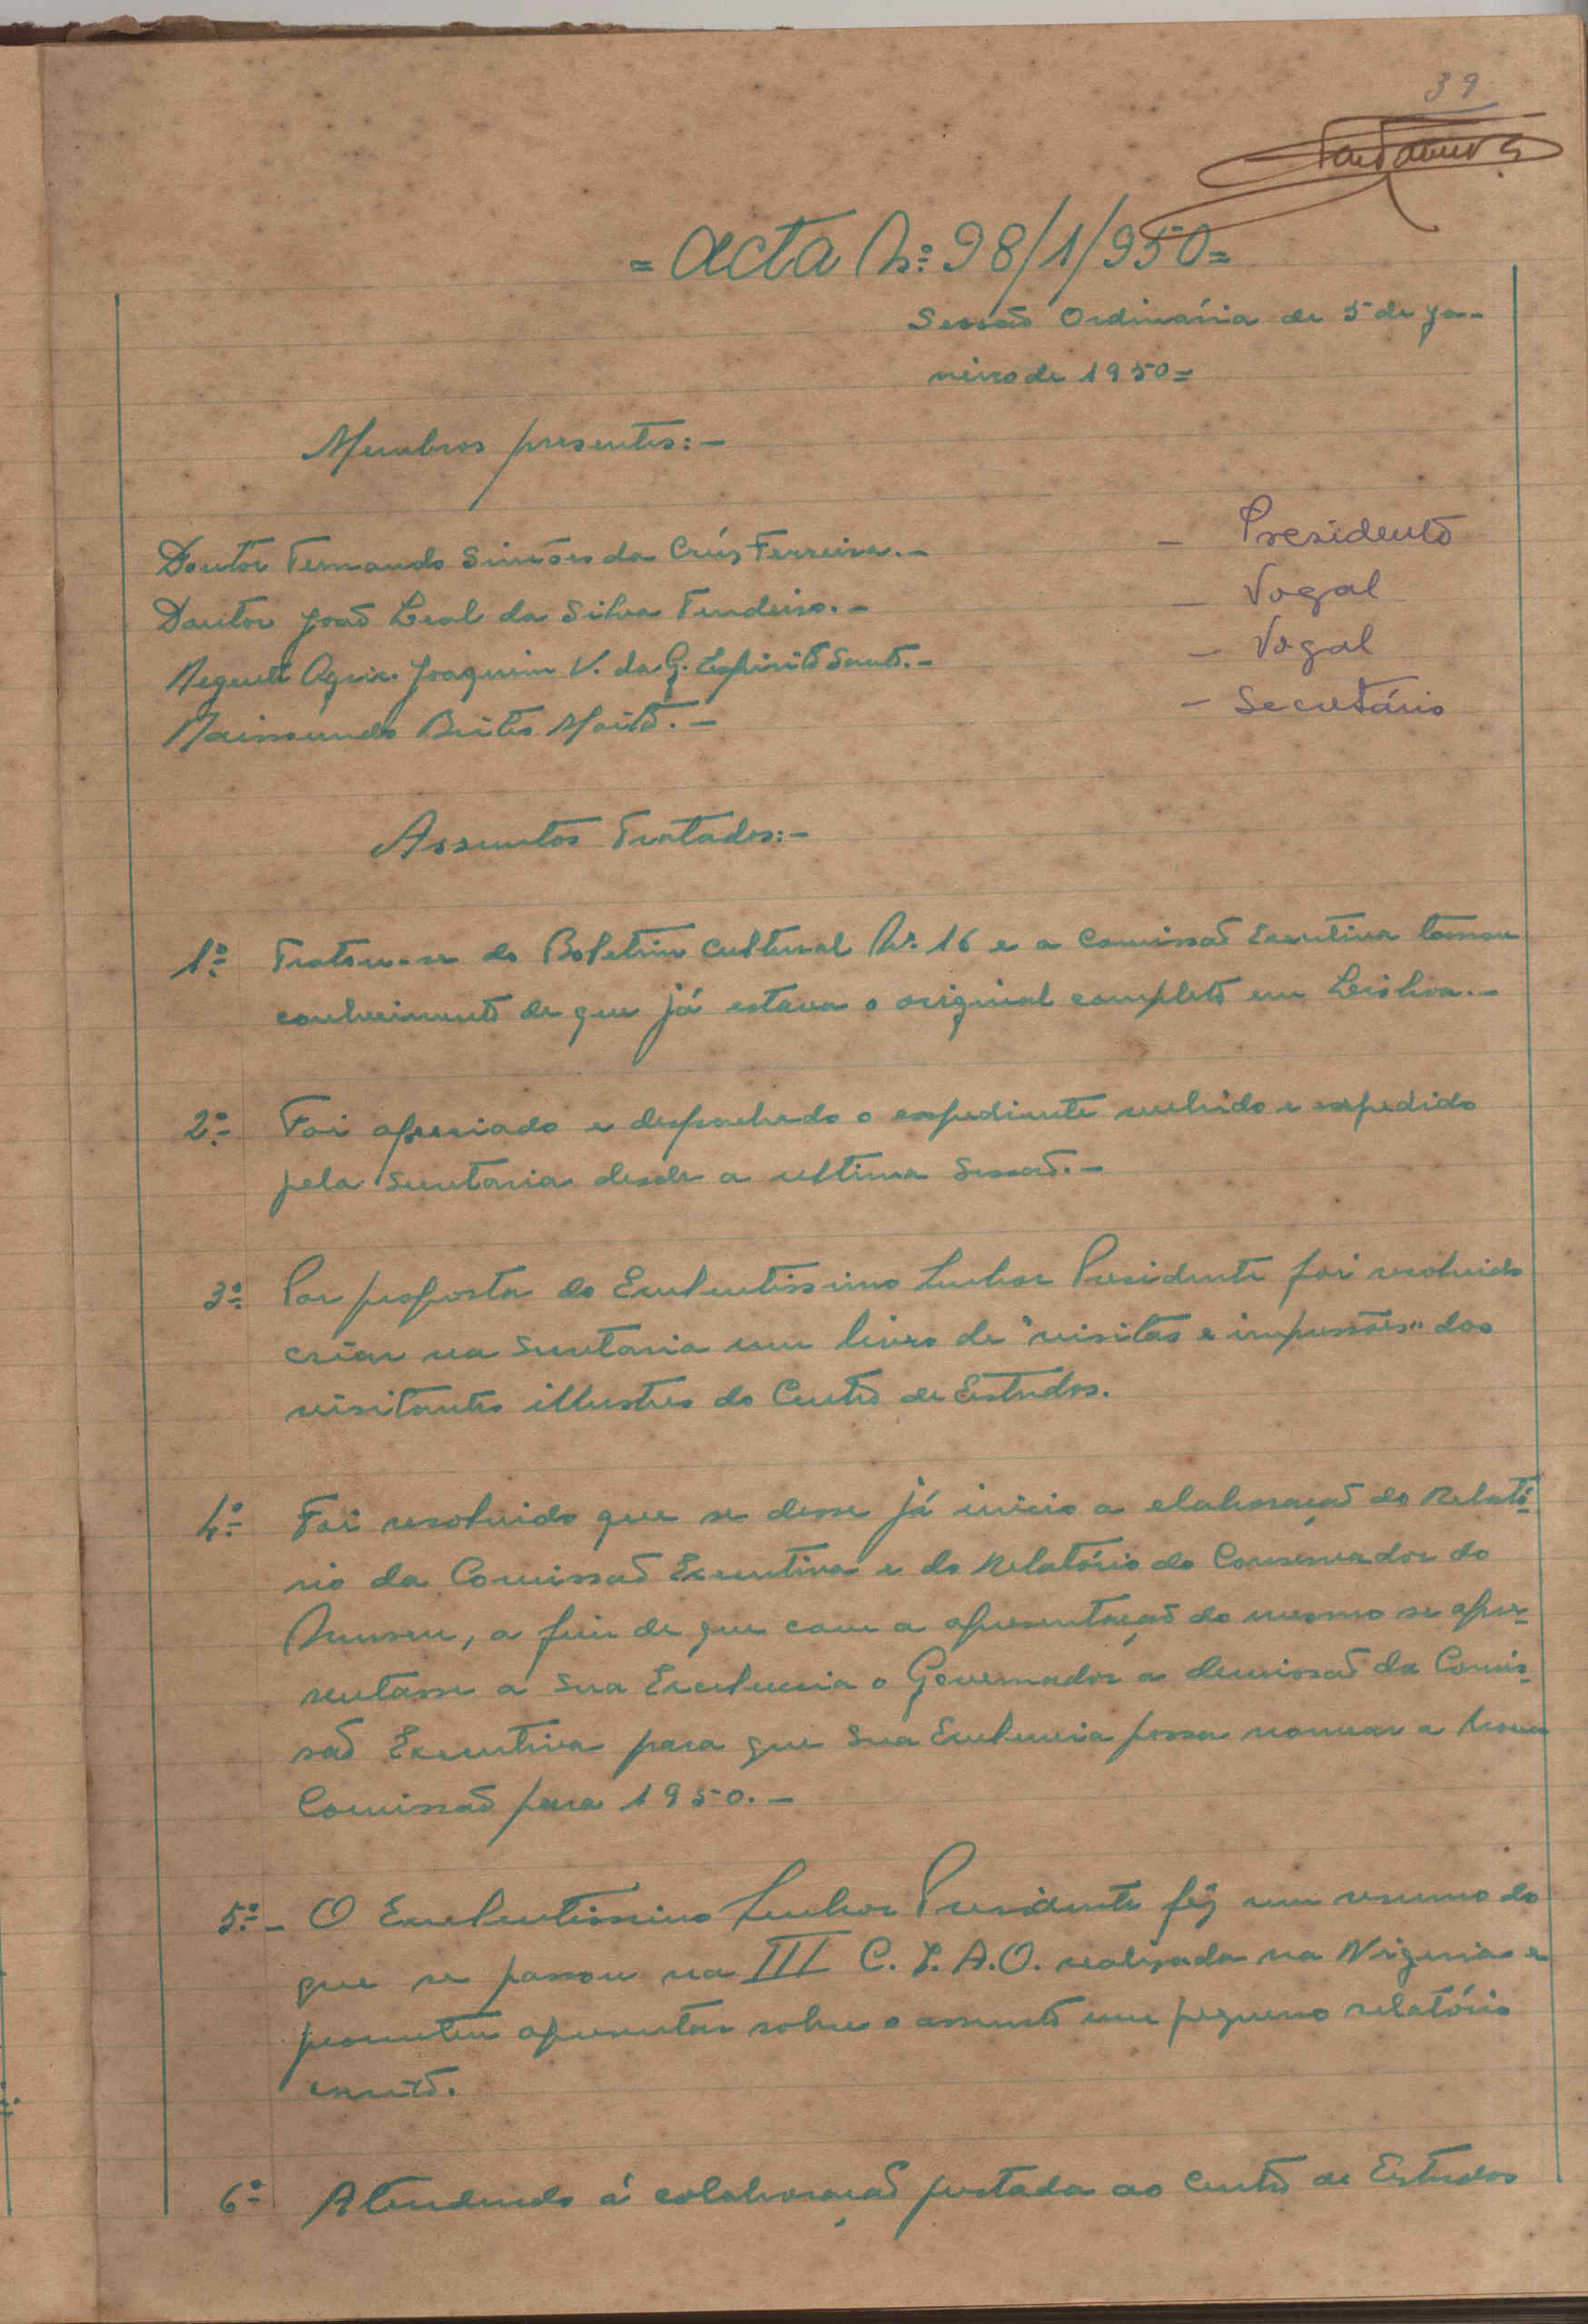 39
= Acta Nº 98/1/950 =
Sessão Ordinária de 5 de Ja-
neiro de 1950 =
Membros presentes: -
Doutor Fernando Simões da Crús Ferreira. - - Presidente
Doutor João Leal da Silva Tendeiro. - - Vogal
Regente Agric. Joaquim V. da G. Espirito Santo. - - Vogal
Raimundo Brites Moita. - - Secretário
Assuntos Tratados: -
1º Tratou-se do Boletim Cultural Nº 16 e a Comissão Executiva tomou
conhecimento de que já estava o original completo em Lisboa. -
2º Foi apreciado e despachado o expediente recebido e expedido
pela Secretaria desde a ultima Sessão. -
3º Por proposta do Excelentissimo Senhor Presidente foi resolvido
criar na Secretaria um livro de "visitas e impressões" dos
visitantes illustres do Centro de Estudos.
4º Foi resolvido que se desse já inicio a elaboração do Relató-
rio da Comissão Executiva e do Relatório do Conservador do
Museu, a fim de que com a apresentação do mesmo se apre-
sentasse a Sua Excelencia o Governador a demissão da Comis-
são Executiva para que Sua Excelencia possa nomear a Nova
Comissão para 1950. -
5º - O Excelentissimo Senhor Presidente fêz um resumo do
que se passou na III C. I. A. O. realizada na Nigeria e
prometeu apresentar sobre o assunto um pequeno relatório
escrito.
6º Atendendo á colaboração prestada ao Centro de Estudos